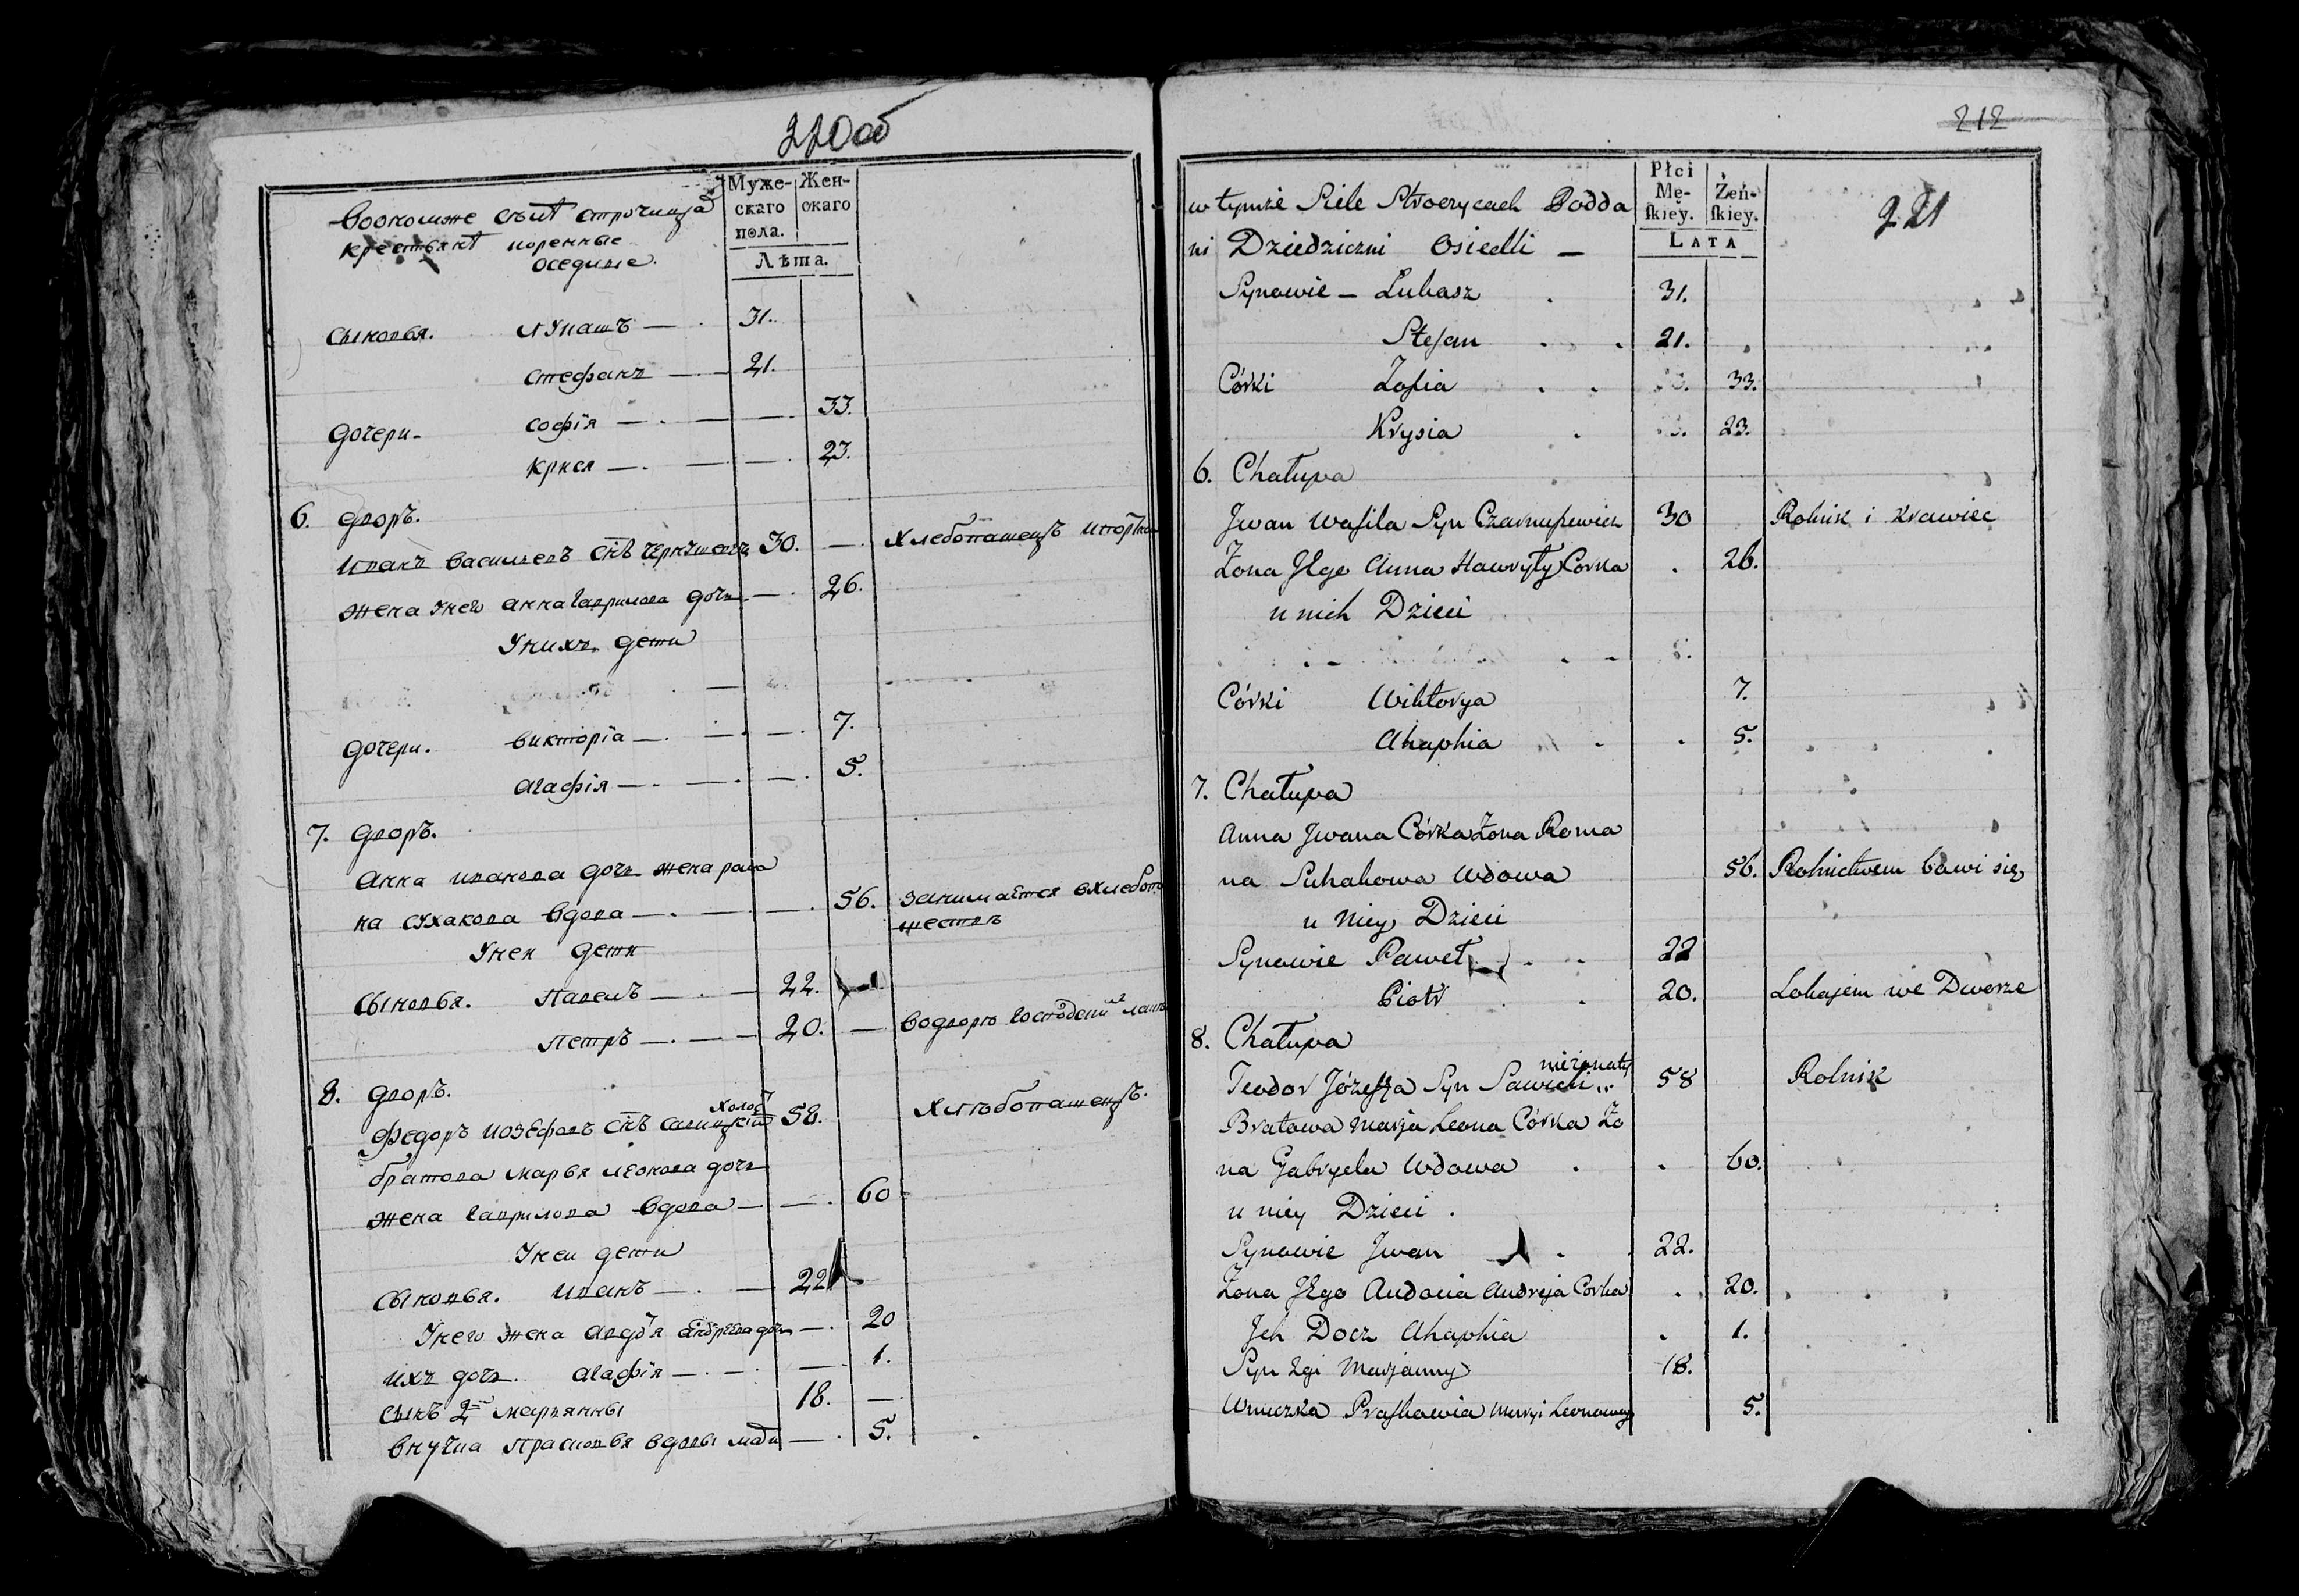 220об
Муже-
скаго
пола.
Жен-
скаго
Лѣта.
Крестьянѣ коренные
оседлые.
Сыновья. Лукашъ — . 31.
Стефанъ — . — 21.
Дочери. Софія — . — — . 33.
Крися — . — — . 23.
6. Дворъ.
Иванъ Васильевъ снъ 30. — .
Жена у него Анна Гаврилова дочь — . 26.
У нихъ дети
Дочери. Викторія — . — . — . 7.
Агафія — . — . — . 5.
7. Дворъ.
Анна Иванова дочь жена Рома
на Сухакова вдова — . — — . 56. занимается
У неи дети
Сыновья. Павелъ — . — 22.
Петръ — . — — 20. — Во дворе
8. Дворъ.
Холос
Федоръ Иозефовъ снъ Савицкій 58. Хлѣбопашецъ.
Братова Марья Леонова дочь
жена Гаврилова вдова — — . 60
У неи дети
Сыновья. Иванъ — . — 22
У него жена Авдоя Андреева дочь — . 20
Ихъ дочь. Агафія — . — . — . 1.
Сынъ 2й Марьянны 18. —
Внучка Прасковья вдовы — . 5.
212
221
w tymże Siele Stroczycach Podda
ni Dziedziczni Osiedli —
Płci
Mę-
skiey.
Żeń-
skiey.
LATA
Synowie — Lukasz . 31.
Stefan . . 21.
Córki Zofia . . 33.
Krysia . 23.
6. Chałupa
Jwan Wasila Syn 30 Rolnik i Krawiec
Żona Jego Anna Hawryły Córka . 26.
u nich Dzieci
Córki Wiktorya 7.
Ahaphia . . 5.
7. Chałupa
Anna Jwana Córka Żona Roma
na Suhakowa Wdowa 56. Rolnictwem bawi się
u Niey Dzieci
Synowie Paweł . . 22
Piotr . . 20. Lokajem we Dworze
8. Chałupa
nieżonaty
Teodor Józefa Syn Sawicki 58 Rolnik
Bratowa Marja Leona Córka Żo
na Gabryela Wdowa . . 60.
u niey Dzieci .
Synowie Jwan . 22.
Żona Jego Audocia Andreja Córka . 20.
Jch Docz Ahaphia . 1.
Syn 2gi Marjanny 18.
Wnuczka Praskowia Maryi Leonowey 5.